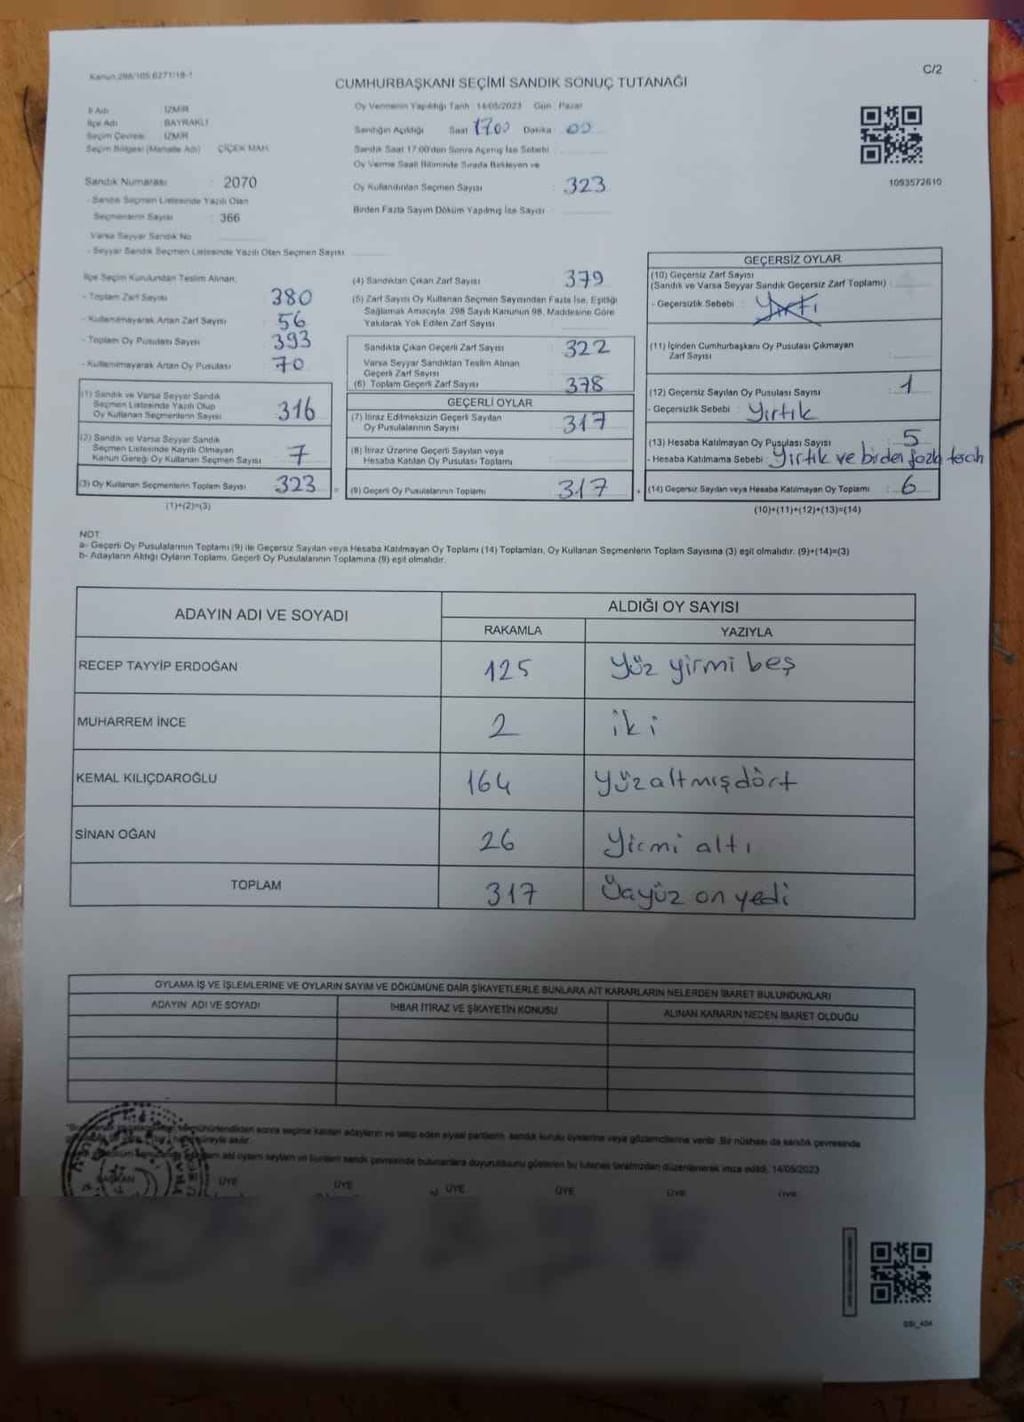 Kanun:298/105 6271/19-1
C/2
CUMHURBAŞKANI SEÇİMİ SANDIK SONUÇ TUTANAĞI
İl Adı : İZMİR
İlçe Adı : BAYRAKLI
Seçim Çevresi : İZMİR
Seçim Bölgesi (Mahalle Adı) : ÇİÇEK MAH.
Sandık Numarası : 2070
- Sandık Seçmen Listesinde Yazılı Olan
Seçmenlerin Sayısı : 366
Varsa Seyyar Sandık No
- Seyyar Sandık Seçmen Listesinde Yazılı Olan Seçmen Sayısı
Oy Vermenin Yapıldığı Tarih 14/05/2023 Gün : Pazar
Sandığın Açıldığı Saat 17.00 Dakika : 00
Sandık Saat 17:00'den Sonra Açılmış İse Sebebi
Oy Verme Saati Bitiminde Sırada Bekleyen ve
Oy Kullandırılan Seçmen Sayısı : 323
Birden Fazla Sayım Döküm Yapılmış İse Sayısı
1093572610
İlçe Seçim Kurulundan Teslim Alınan;
- Toplam Zarf Sayısı : 380
- Kullanılmayarak Artan Zarf Sayısı : 56
- Toplam Oy Pusulası Sayısı : 393
- Kullanılmayarak Artan Oy Pusulası : 70
(1) Sandık ve Varsa Seyyar Sandık
Seçmen Listesinde Yazılı Olup
Oy Kullanan Seçmenlerin Sayısı : 316
(2) Sandık ve Varsa Seyyar Sandık
Seçmen Listesinde Kayıtlı Olmayan
Kanun Gereği Oy Kullanan Seçmen Sayısı : 7
(3) Oy Kullanan Seçmenlerin Toplam Sayısı : 323
(1)+(2)=(3)
(4) Sandıktan Çıkan Zarf Sayısı : 379
(5) Zarf Sayısı Oy Kullanan Seçmen Sayısından Fazla İse, Eşitliği
Sağlamak Amacıyla, 298 Sayılı Kanunun 98. Maddesine Göre
Yakılarak Yok Edilen Zarf Sayısı
Sandıkta Çıkan Geçerli Zarf Sayısı : 322
Varsa Seyyar Sandıktan Teslim Alınan
Geçerli Zarf Sayısı
(6) Toplam Geçerli Zarf Sayısı : 378
GEÇERLİ OYLAR
(7) İtiraz Edilmeksizin Geçerli Sayılan
Oy Pusulalarının Sayısı : 317
(8) İtiraz Üzerine Geçerli Sayılan veya
Hesaba Katılan Oy Pusulası Toplamı
(9) Geçerli Oy Pusulalarının Toplamı : 317
GEÇERSİZ OYLAR
(10) Geçersiz Zarf Sayısı
(Sandık ve Varsa Seyyar Sandık Geçersiz Zarf Toplamı) :
- Geçersizlik Sebebi :
(11) İçinden Cumhurbaşkanı Oy Pusulası Çıkmayan
Zarf Sayısı
(12) Geçersiz Sayılan Oy Pusulası Sayısı : 1
- Geçersizlik Sebebi : Yırtık
(13) Hesaba Katılmayan Oy Pusulası Sayısı : 5
- Hesaba Katılmama Sebebi : Yırtık ve birden fazla tercih
(14) Geçersiz Sayılan veya Hesaba Katılmayan Oy Toplamı : 6
(10)+(11)+(12)+(13)=(14)
NOT:
a- Geçerli Oy Pusulalarının Toplamı (9) ile Geçersiz Sayılan veya Hesaba Katılmayan Oy Toplamı (14) Toplamları, Oy Kullanan Seçmenlerin Toplam Sayısına (3) eşit olmalıdır. (9)+(14)=(3)
b- Adayların Aldığı Oyların Toplamı, Geçerli Oy Pusulalarının Toplamına (9) eşit olmalıdır.
ADAYIN ADI VE SOYADI
ALDIĞI OY SAYISI
RAKAMLA YAZIYLA
RECEP TAYYİP ERDOĞAN 125 Yüz yirmi beş
MUHARREM İNCE 2 iki
KEMAL KILIÇDAROĞLU 164 yüzaltmışdört
SİNAN OĞAN 26 Yirmi altı
TOPLAM 317 Üçyüz on yedi
OYLAMA İŞ VE İŞLEMLERİNE VE OYLARIN SAYIM VE DÖKÜMÜNE DAİR ŞİKAYETLERLE BUNLARA AİT KARARLARIN NELERDEN İBARET BULUNDUKLARI
ADAYIN ADI VE SOYADI İHBAR İTİRAZ VE ŞİKAYETİN KONUSU ALINAN KARARIN NEDEN İBARET OLDUĞU
sonra seçime katılan adayların ve talep eden siyasi partilerin sandık kurulu üyelerine veya gözlemcilerine verilir. Bir nüshası da sandık çevresinde
tarafımızdan düzenlenerek imza edildi. 14/05/2023
BAŞKAN ÜYE ÜYE ÜYE ÜYE ÜYE ÜYE